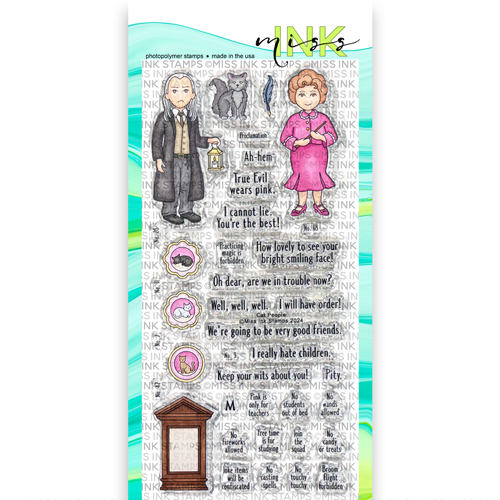 miss
INK
photopolymer stamps • made in the usa
Proclamation
Ah-hem
True Evil
wears pink.
I cannot lie.
You're the best!
No. 98
Practicing
magic is
forbidden.
How lovely to see your
bright smiling face!
Oh dear, are we in trouble now?
Well, well, well.
I will have order!
Cat People
©Miss Ink Stamps 2024
We're going to be very good friends.
I really hate children.
Keep your wits about you!
Pity.
M
Pink is
only for
teachers
No
students
out of bed
No
wands
allowed
No
fireworks
allowed
Free time
is for
studying
Join
the
squad
No
candy
or treats
Fake items
will be
confiscated
No
casting
spells
No
touchy
touchy
Broom
flight
forbidden
MISS INK STAMPS ©MISS INK STAMPS